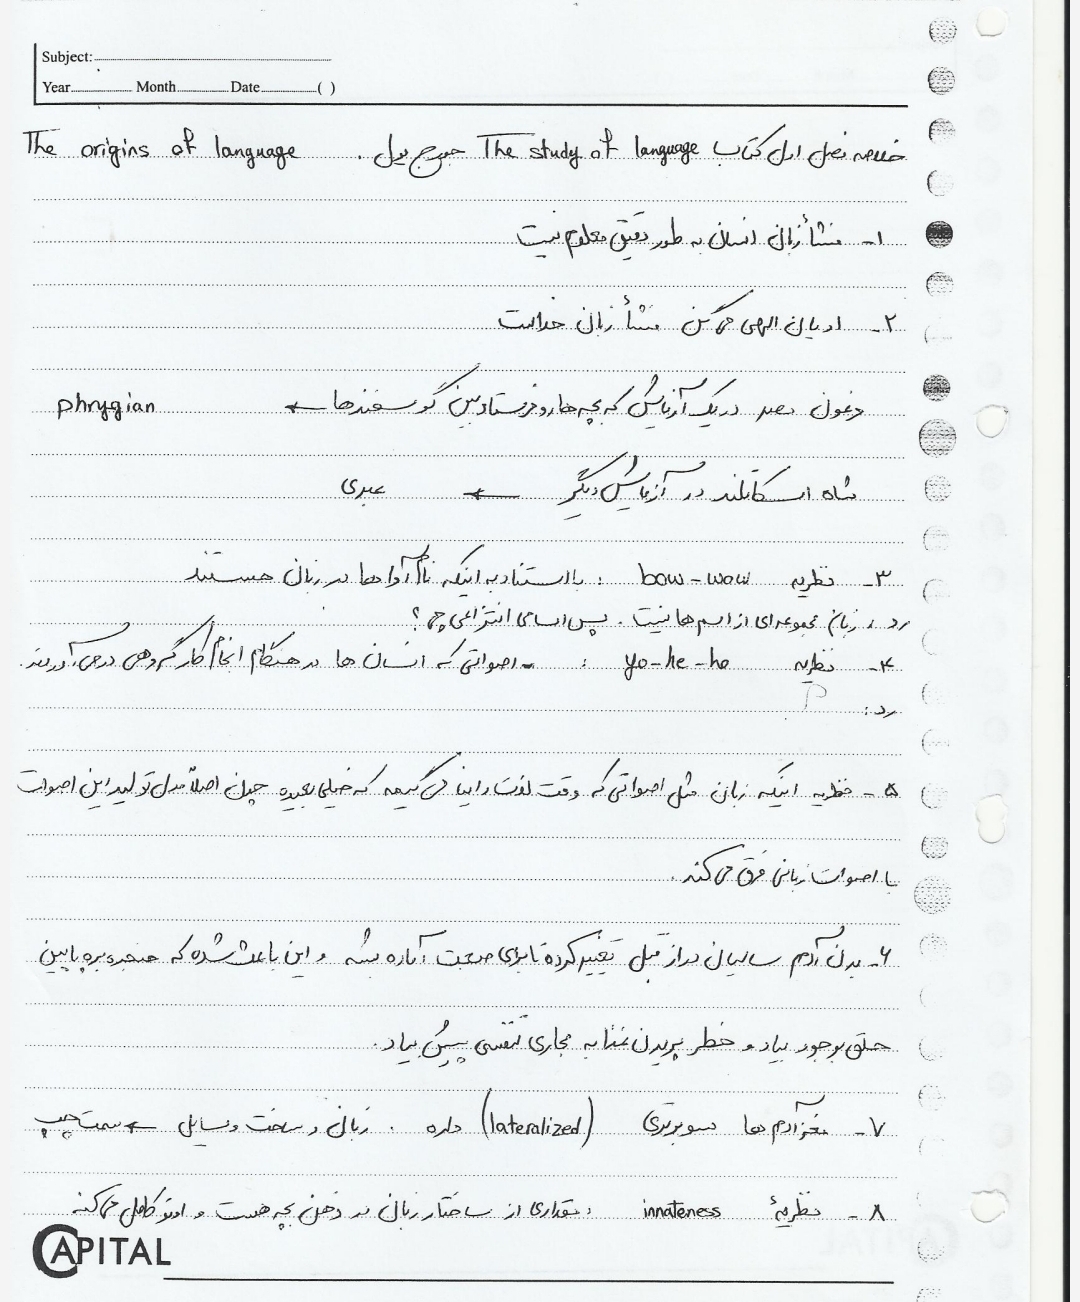 Subject:
Year Month Date ( )
خلاصه فصل اول کتاب The study of language جورج یول . The origins of language
۱- منشأ زبان انسان به طور دقیق معلوم نیست
۲- ادیان الهی می گن منشأ زبان خداست
فرعون مصر در یک آزمایش که بچه ها رو فرستاد بین گوسفندها ← phrygian
شاه اسکاتلند در آزمایش دیگر ← عبری
۳- نظریه bow-wow : با استناد به اینکه نام آواها در زبان هستند
رد : زبان مجموعه ای از اسم ها نیست . پس اسامی انتزاعی چی ؟
۴- نظریه yo-he-ho : اصواتی که انسان ها در هنگام انجام کار گروهی در می آوردند.
رد :
۵- نظریه اینکه زبان مثل اصواتی که وقت لذت و اینا می گیمه که خیلی بعیده چون اصلاً مدل تولید این اصوات
با اصوات زبانی فرق می کند .
۶- بدن آدم سالیان دراز قبل تغییر کرده تا برای صحبت آماده بشه و این باعث شده که حنجره بره پایین
حلق بوجود بیاد و خطر پریدن غذا به مجاری تنفسی پیش بیاد .
۷- مغز آدم ها سوبرتری (lateralized) داره . زبان و ساخت وسایل ← سمت چپ
۸- نظریهٔ innateness : مقداری از ساختار زبان در ذهن بچه هست و اونو کامل می کنه
CAPITAL